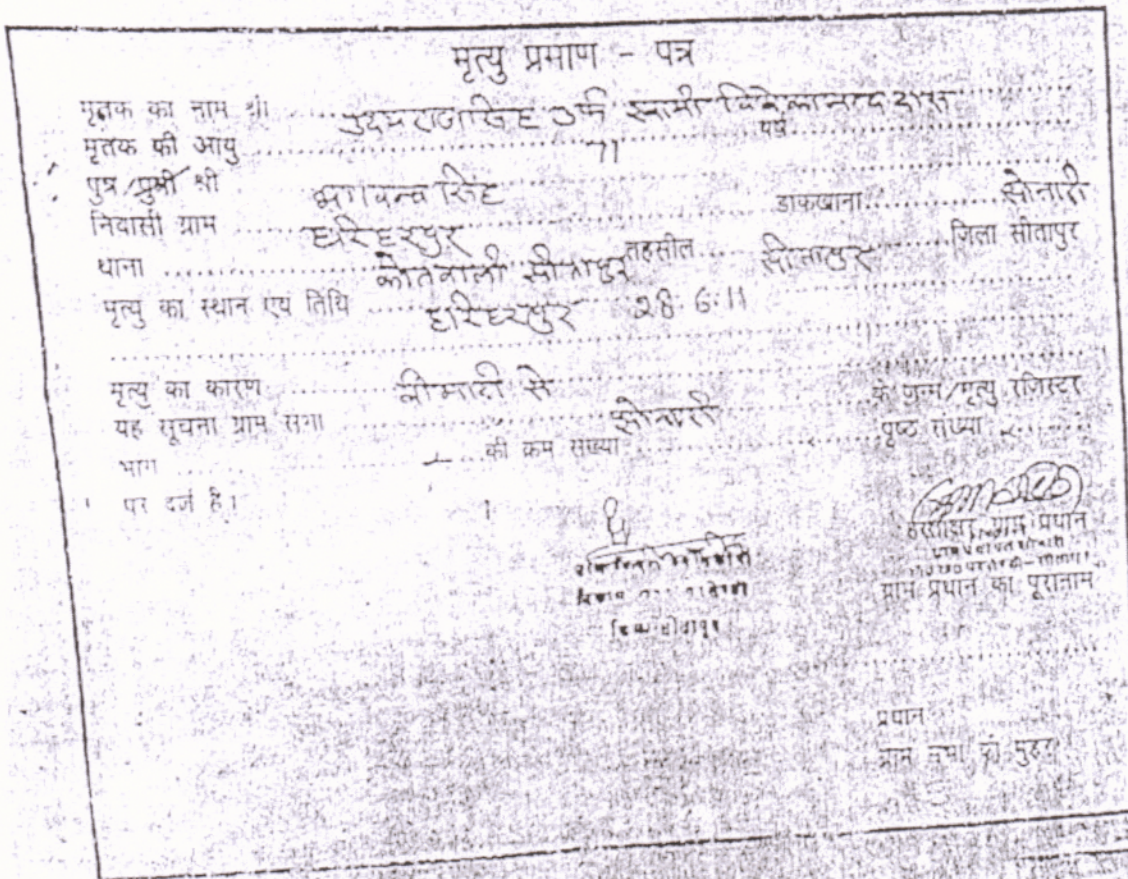 मृत्यु प्रमाण - पत्र
मृतक का नाम श्री उदयराज सिंह उर्फ स्वामी विवेकानन्द दास
मृतक की आयु 71 वर्ष
पुत्र/पुत्री श्री भगवन्त सिंह
निवासी ग्राम हरिहरपुर डाकखाना सोनारी
थाना कोतवाली सीतापुर तहसील सीतापुर जिला सीतापुर
मृत्यु का स्थान एवं तिथि हरिहरपुर 28.6.11
मृत्यु का कारण बीमारी से
यह सूचना ग्राम सभा सोनारी के जन्म/मृत्यु रजिस्टर
भाग की क्रम संख्या पृष्ठ संख्या
पर दर्ज है।
हस्ताक्षर ग्राम प्रधान
ग्राम प्रधान का पूरा नाम
प्रधान
ग्राम सभा की मुहर